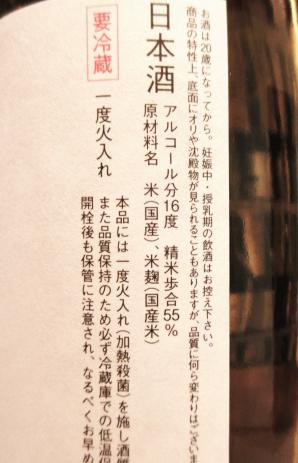 お酒は20歳になってから。妊娠中・授乳期の飲酒はお控え下さい。
商品の特性上、底面にオリや沈殿物が見られることもありますが、品質に何ら変わりはございま
日本酒
アルコール分16度 精米歩合55%
原材料名 米(国産)、米麹(国産米)
要冷蔵
一度火入れ
本品には一度火入れ(加熱殺菌)を施し酒質
また品質保持のため必ず冷蔵庫での低温保
開栓後も保管に注意され、なるべくお早め